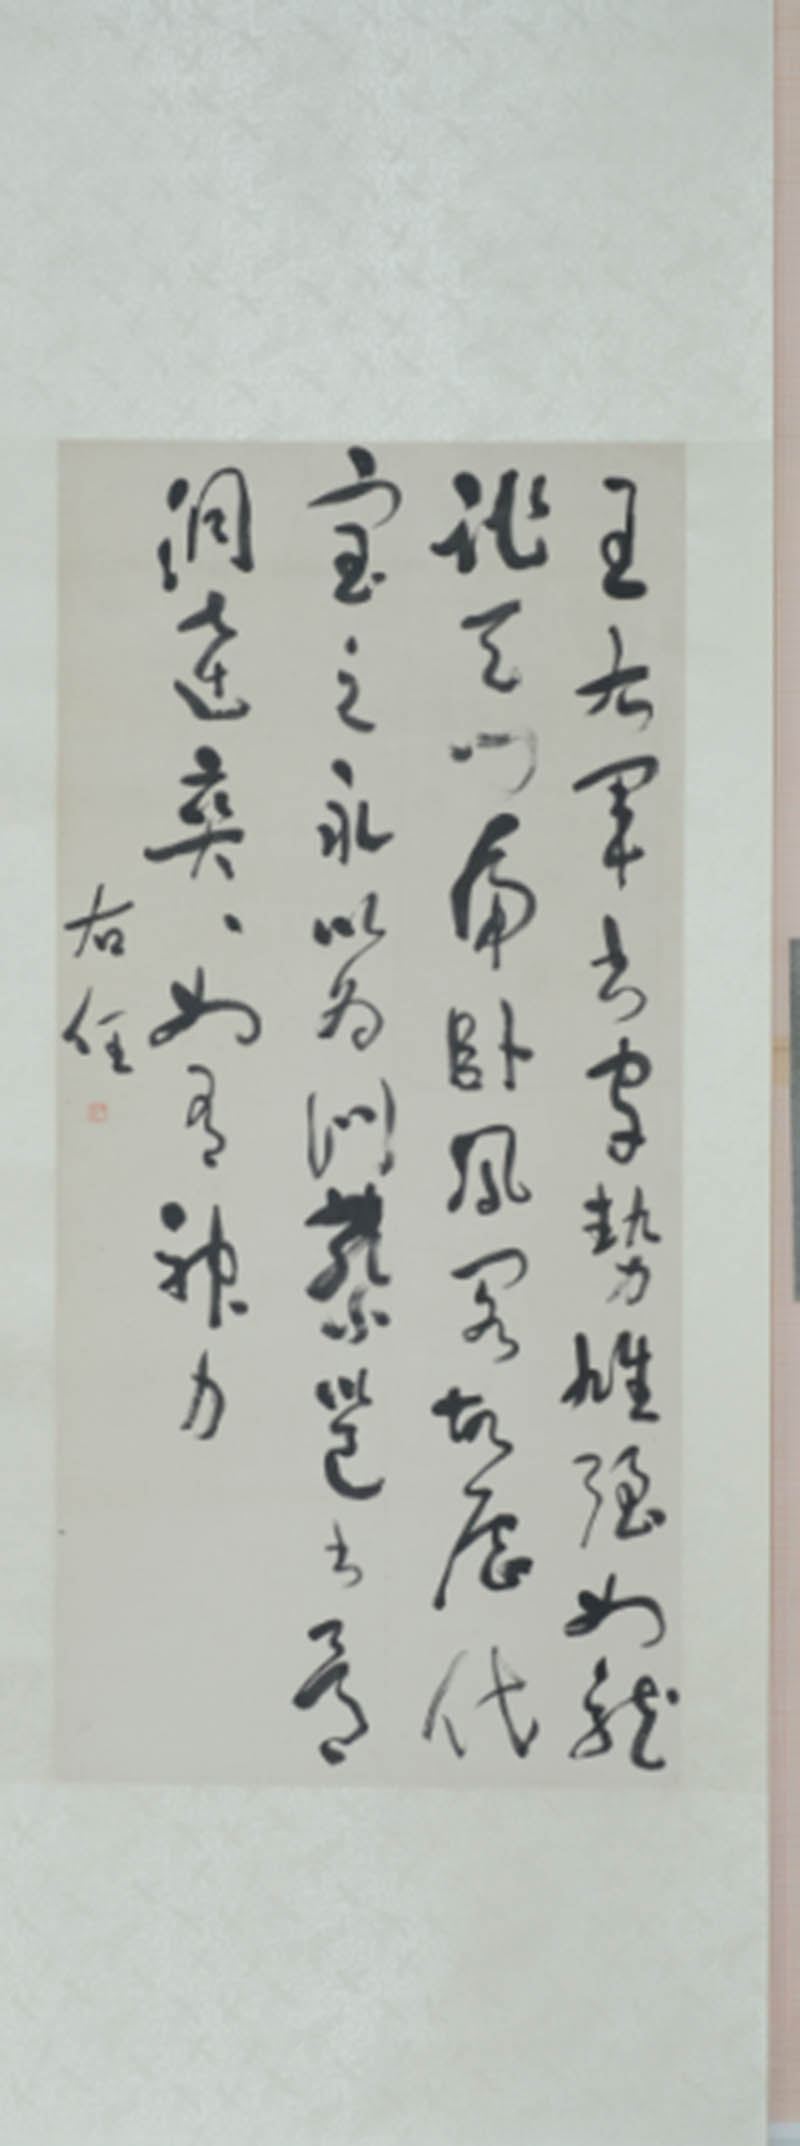 王右軍書字勢雄強如龍
跳天門虎卧鳳閣故歷代
寶之永以為訓蔡邕書骨
洞達奕、如有神力
右任